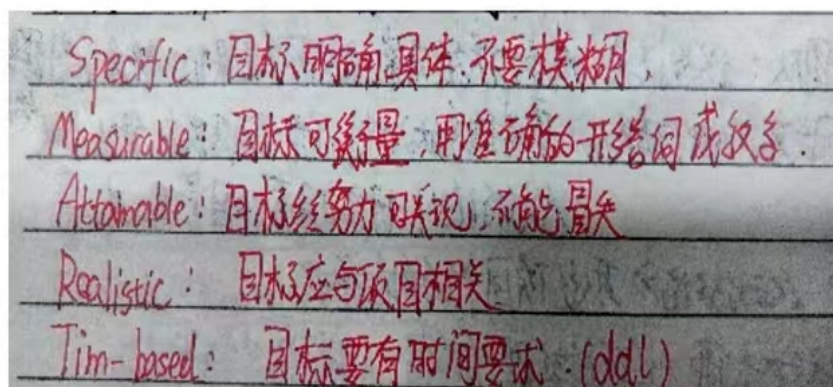 Specific：目标明确具体.不要模糊.
Measurable：目标可衡量,用准确的形容词或数字.
Attainable：目标经努力可实现,不能冒失
Realistic：目标应与项目相关
Tim-based：目标要有时间要求.(ddl)